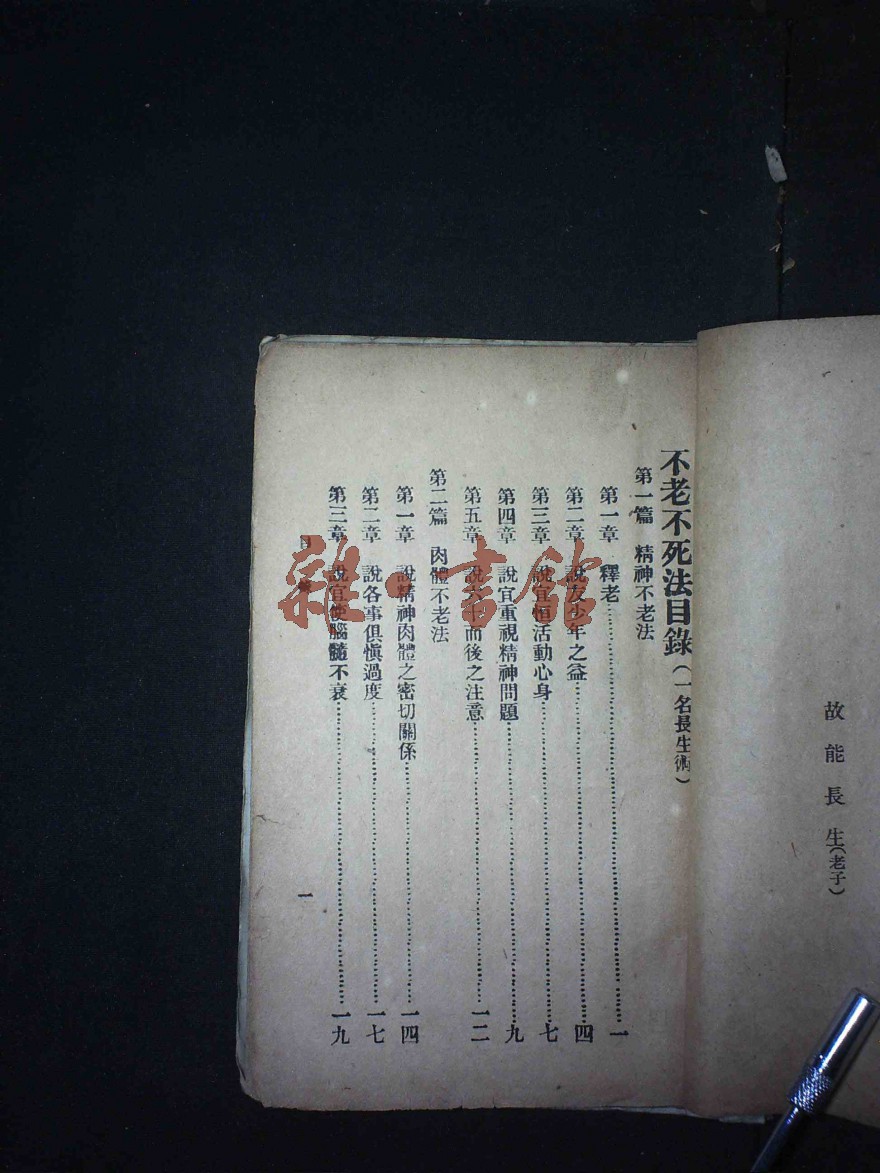 故能長生(老子)
不老不死法目錄(一名長生術)
第一篇 精神不老法
第一章 釋老…………一
第二章 說友少年之益…………四
第三章 說宜恒活動心身…………七
第四章 說宜重視精神問題…………九
第五章 說六十而後之注意…………一二
第二篇 肉體不老法
第一章 說精神肉體之密切關係…………一四
第二章 說各事俱愼過度…………一七
第三章 說宜使腦髓不衰…………一九
目錄
一
雜·書館